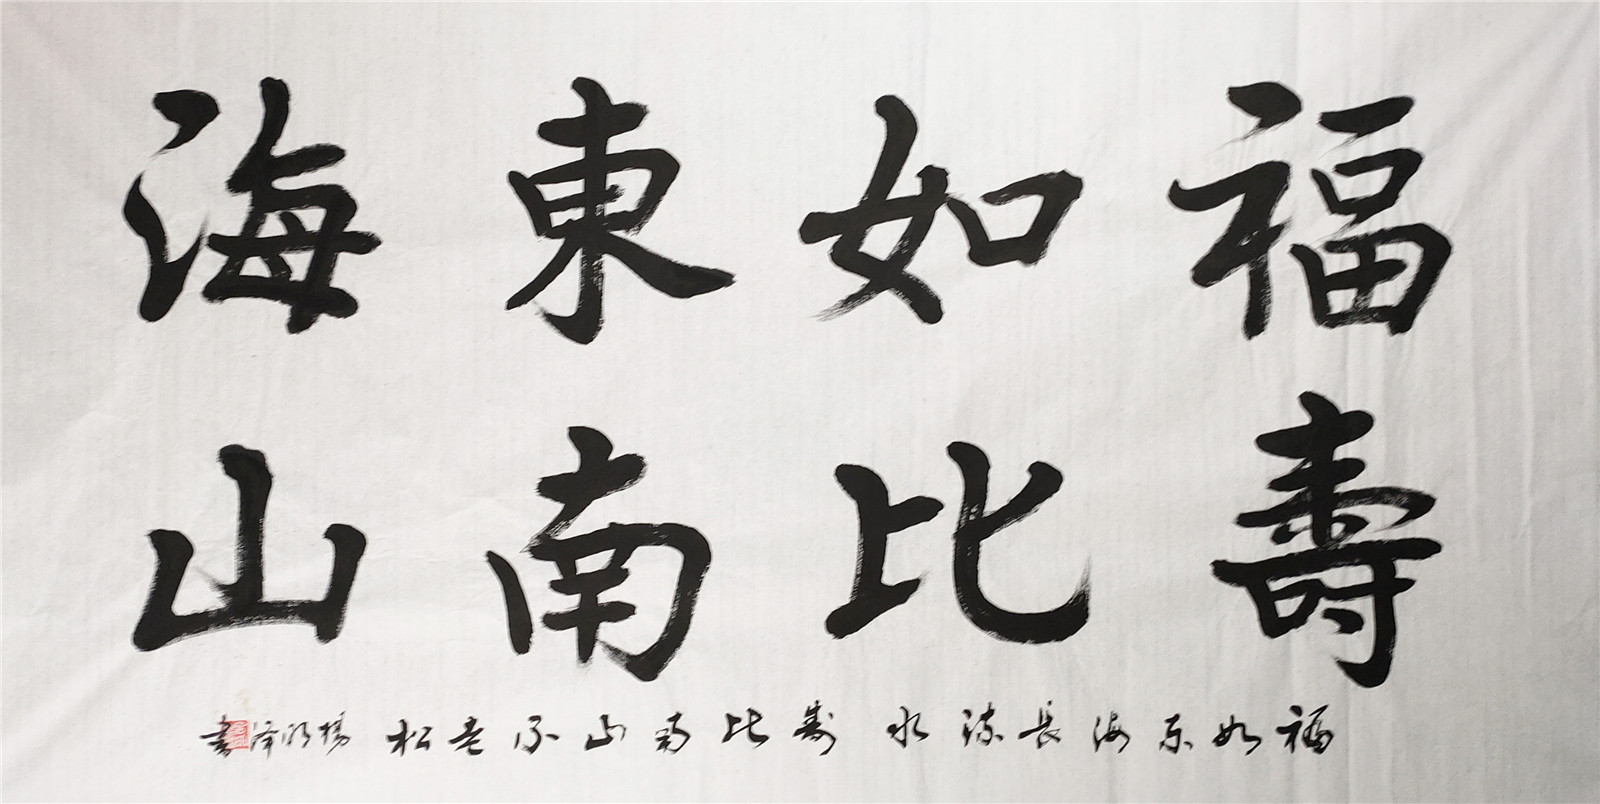 福如東海
壽比南山
福如东海长流水 寿比南山不老松 楊明澤書